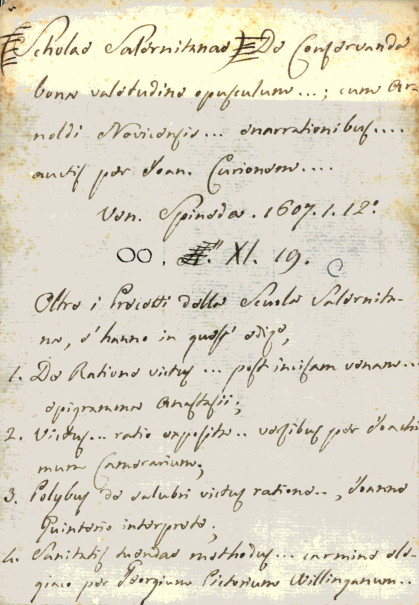 Scholae Salernitanae De Conservanda
bona valetudine opusculum...; cum Ar-
noldi Novicensis... enarrationibus....
auctis per Joan. Curionem....
Ven. Spineda. 1607. 1. 12.°
OO. XI. 19.
Oltre i Precetti della Scuola Salernita-
na, s'hanno in quest' ediz.,
1. De Ratione victus ... post incisam venam...
epigramma Anastasii;
2. Victus... ratio exposita... versibus per Joachi-
mum Camerarium;
3. Polybus de salubri victus ratione.., Joanne
Guinterio interprete;
4. Sanitatis tuendae methodus... carmine ele-
giaco per Georgium Pictorium Willinganum..